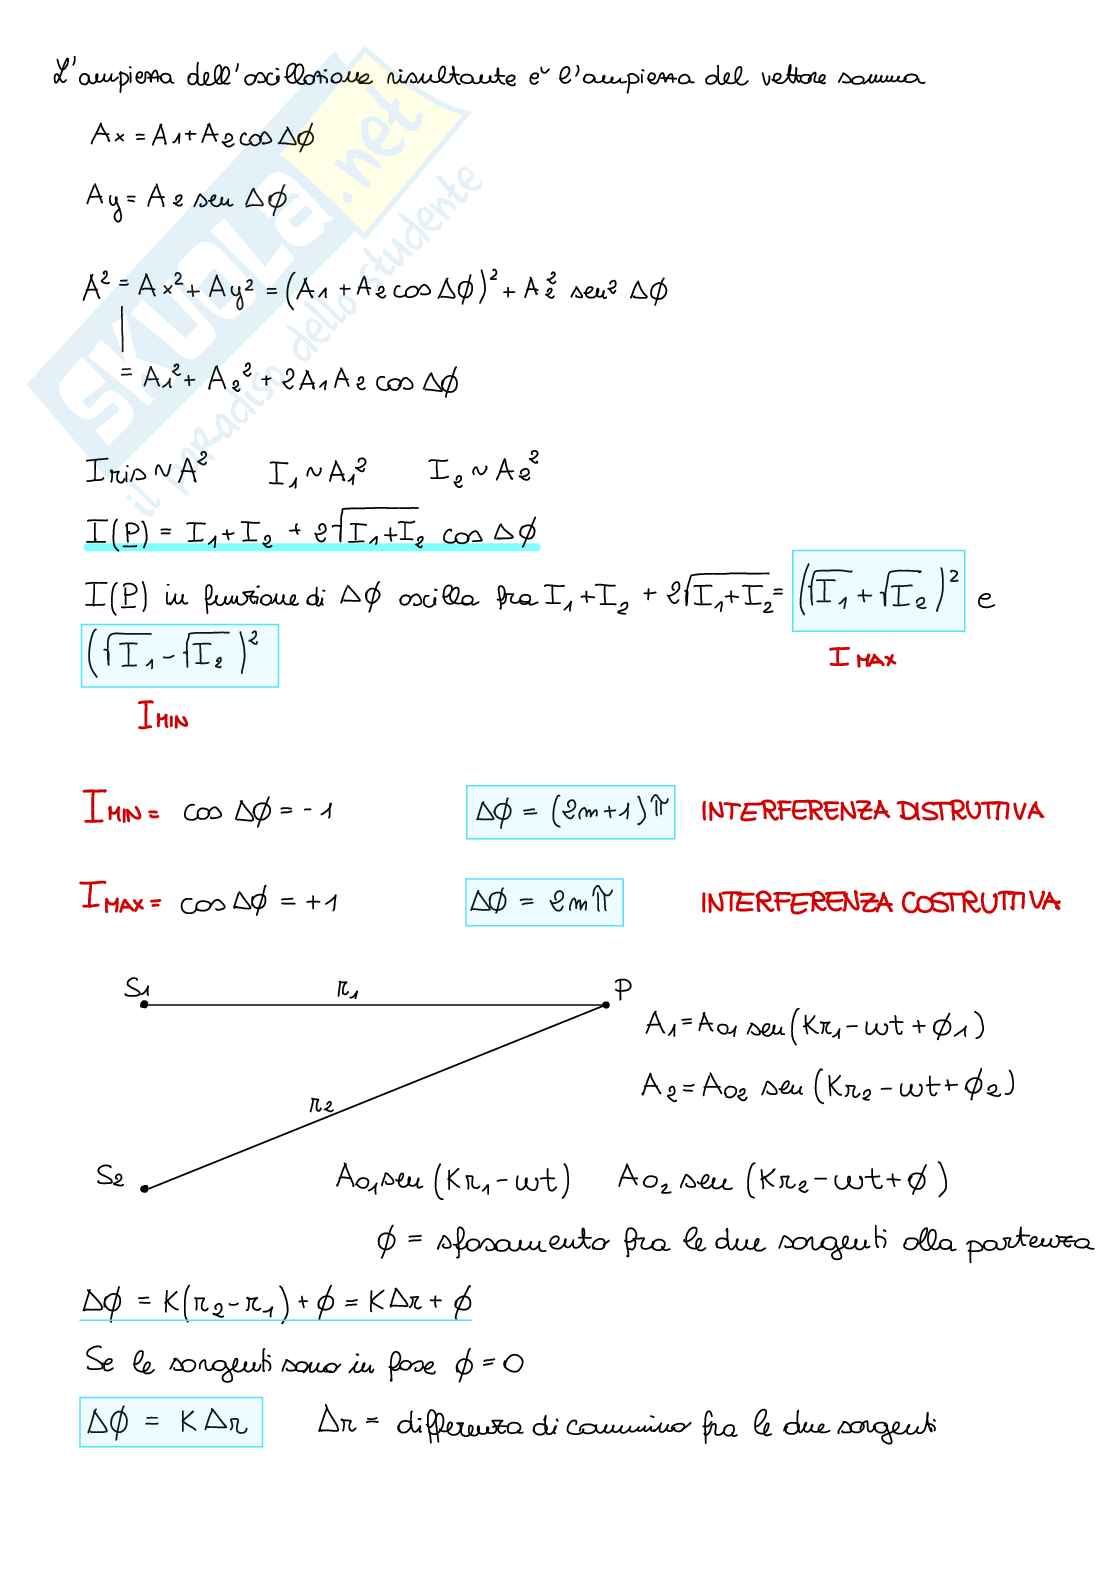 L'ampiezza dell'oscillazione risultante è l'ampiezza del vettore somma
Ax = A1 + A2 cos Δϕ
Ay = A2 sen Δϕ
A² = Ax² + Ay² = (A1 + A2 cos Δϕ)² + A2² sen² Δϕ
= A1² + A2² + 2A1A2 cos Δϕ
Iris ~ A² I1 ~ A1² I2 ~ A2²
I(P) = I1 + I2 + 2√(I1+I2) cos Δϕ
I(P) in funzione di Δϕ oscilla fra I1 + I2 + 2√(I1+I2) = (√I1 + √I2)² e
(√I1 - √I2)²
I MAX
I MIN
I MIN = cos Δϕ = -1 Δϕ = (2m+1)π INTERFERENZA DISTRUTTIVA
I MAX = cos Δϕ = +1 Δϕ = 2mπ INTERFERENZA COSTRUTTIVA
S1 r1 P
A1 = A01 sen(Kr1 - ωt + ϕ1)
A2 = A02 sen(Kr2 - ωt + ϕ2)
r2
S2 A01 sen(Kr1 - ωt) A02 sen(Kr2 - ωt + ϕ)
ϕ = sfasamento fra le due sorgenti alla partenza
Δϕ = K(r2 - r1) + ϕ = KΔr + ϕ
Se le sorgenti sono in fase ϕ = 0
Δϕ = KΔr Δr = differenza di cammino fra le due sorgenti
SKUOLA.net
il paradiso dello studente